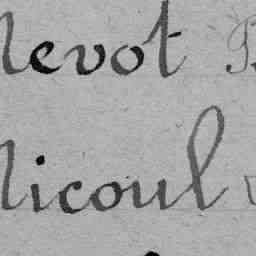 Nevot
Nicoul